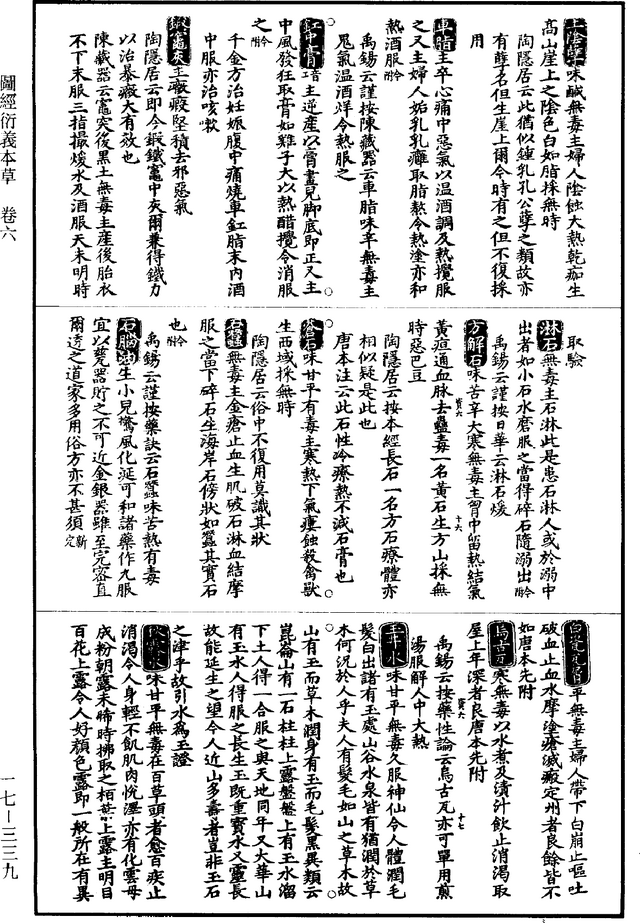 圖經衍義本草　卷六
土陰孽味鹹無毒主婦人陰蝕大熱乾痂生
高山崖上之陰色白如脂採無時
陶隱居云此猶似鍾乳孔公孽之類故亦
有孽名但生崖上爾今時有之但不復採
用
車脂主卒心痛中惡氣以溫酒調及熱攪服
之又主婦人妬乳乳癰取脂熬令熱塗亦和
熱酒服
禹錫云謹按陳藏器云車脂味辛無毒主
鬼氣溫酒烊令熱服之
釭中膏主逆産以膏畫兒腳底即正又主
中風發狂取膏如雞子大以熱醋攪令消服
之
千金方治妊娠腹中痛燒車釭脂末內酒
中服亦治咳嗽
鍛竈灰主癥瘕堅積去邪惡氣
陶隱居云即今鍛鐵竈中灰爾兼得鐵力
以治暴癥大有效也
陳藏器云竈突後黑土無毒主産後胎衣
不下末服三指撮煖水及酒服天未明時
取驗
淋石無毒主石淋此是患石淋人或於溺中
出者如小石水磨服之當得碎石隨溺出
禹錫云謹按日華云淋石煖
方解石味苦辛大寒無毒主胷中留熱結氣
黃疸通血脉去蠱毒一名黃石生方山採無
時惡巴豆
陶隱居云按本經長石一名方石療體亦
相似疑是此也
唐本注云此石性冷療熱不減石膏也
蒼石味甘平有毒主寒熱下氣瘻蝕殺禽獸
生西域採無時
陶隱居云俗中不復用莫識其狀
石蠶無毒主金瘡止血生肌破石淋血結摩
服之當下碎石生海岸石傍狀如蠶其實石
也
禹錫云謹按藥訣云石蠶味苦熱有毒
石腦油生小兒驚風化涎可和諸藥作丸服
宜以甆器貯之不可近金銀器雖至完密直
爾透之道家多用俗方亦不甚須
白瓷瓦屑平無毒主婦人帶下白崩止嘔吐
破血止血水摩塗瘡滅瘢定州者良餘皆不
如唐本先附
烏古瓦寒無毒以水煮及漬汁飲止消渴取
屋上年深者良唐本先附
禹錫云按藥性論云烏古瓦亦可單用煎
湯服解人中大熱
玉井水味甘平無毒久服神仙令人體潤毛
髮白出諸有玉處山谷水泉皆有猶潤於草
木何況於人乎夫人有髮毛如山之草木故
山有玉而草木潤身有玉而毛髮黑異類云
崑崙山有一石柱柱上露盤盤上有玉水溜
下土人得一合服之與天地同年又太華山
有玉水人得服之長生玉既重寶水又靈長
故能延生之望令人近山多壽者豈非玉石
之津乎故引水為玉證
味甘平無毒在百草頭者愈百疾止
消渴令人身輕不飢肌肉悅澤亦有化雲母
成粉朝露未晞時拂取之栢葉上露主明目
百花上露令人好顏色露即一般所在有異
一七－三三九